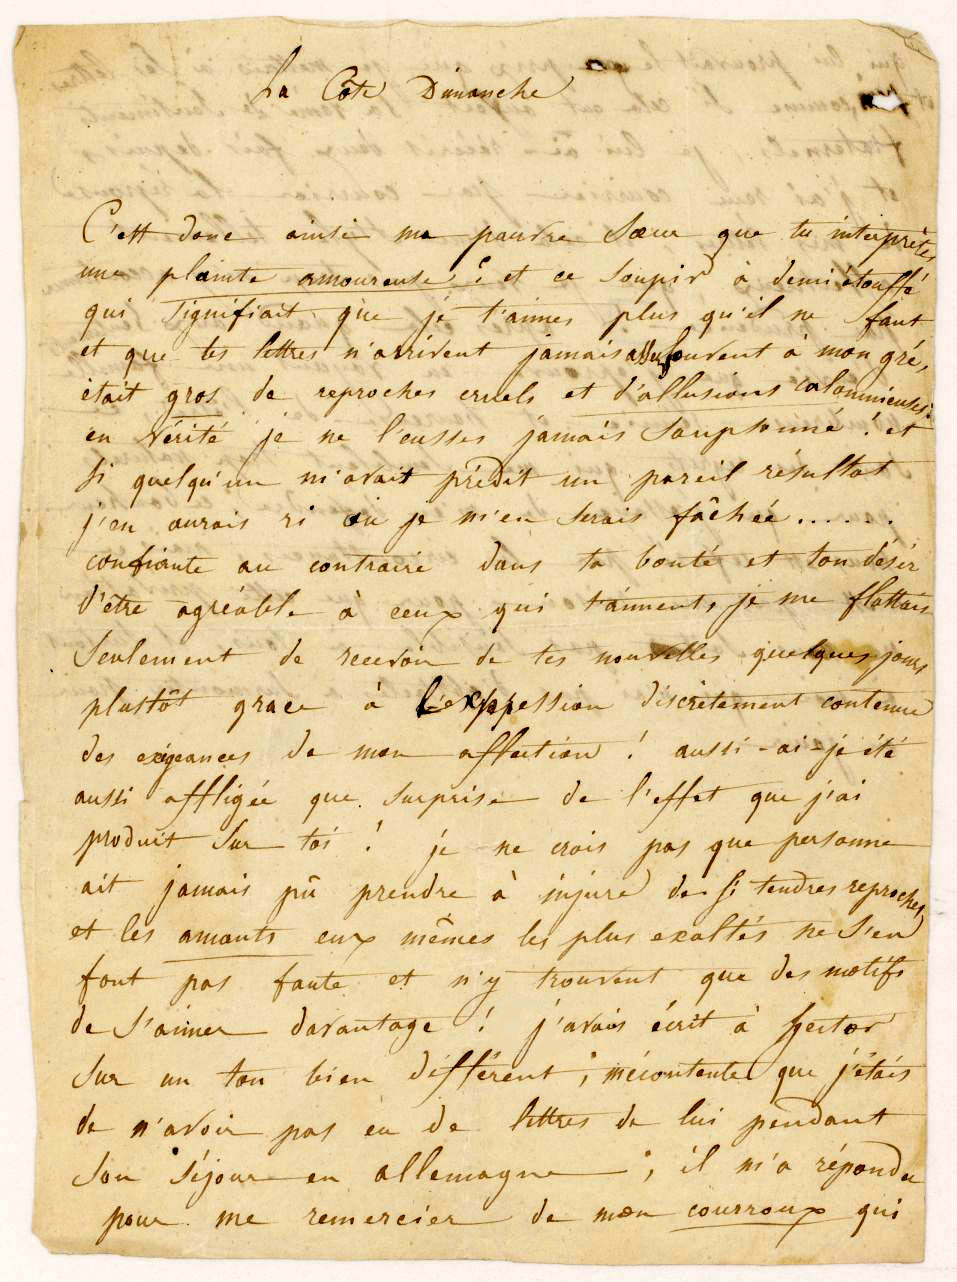 La Côte Dimanche
C'est donc ainsi ma pauvre Sœur que tu interprètes
une plainte amoureuse ? et ce soupir à demi étouffé
qui signifiait que je t'aimes plus qu'il ne faut
et que tes lettres n'arrivent jamais assez souvent à mon gré,
était gros de reproches cruels et d'allusions calomnieuses.
en vérité je ne l'eusses jamais soupsonné ! et
si quelqu'un m'avait prédit un pareil résultat
j'en aurais ri ou je m'en serais fâchée......
confiante au contraire dans ta bonté et ton désir
d'être agréable à ceux qui t'aiment, je me flattais
Seulement de recevoir de tes nouvelles quelques jours
plustôt grace à l'expression discrètement contenue
des exigeances de mon affection ! aussi-ai-je été
aussi affligée que surprise de l'effet que j'ai
produit sur toi ! je ne crois pas que personne
ait jamais pû prendre à injure de si tendres reproches,
et les amants eux mêmes les plus exaltés ne s'en
font pas faute et n'y trouvent que des motifs
de s'aimer davantage ! j'avais écrit à Hector
sur un ton bien différent, mécontente que j'étais
de n'avoir pas eu de lettres de lui pendant
son séjour en allemagne ; il m'a répondu
pour me remercier de mon courroux qui